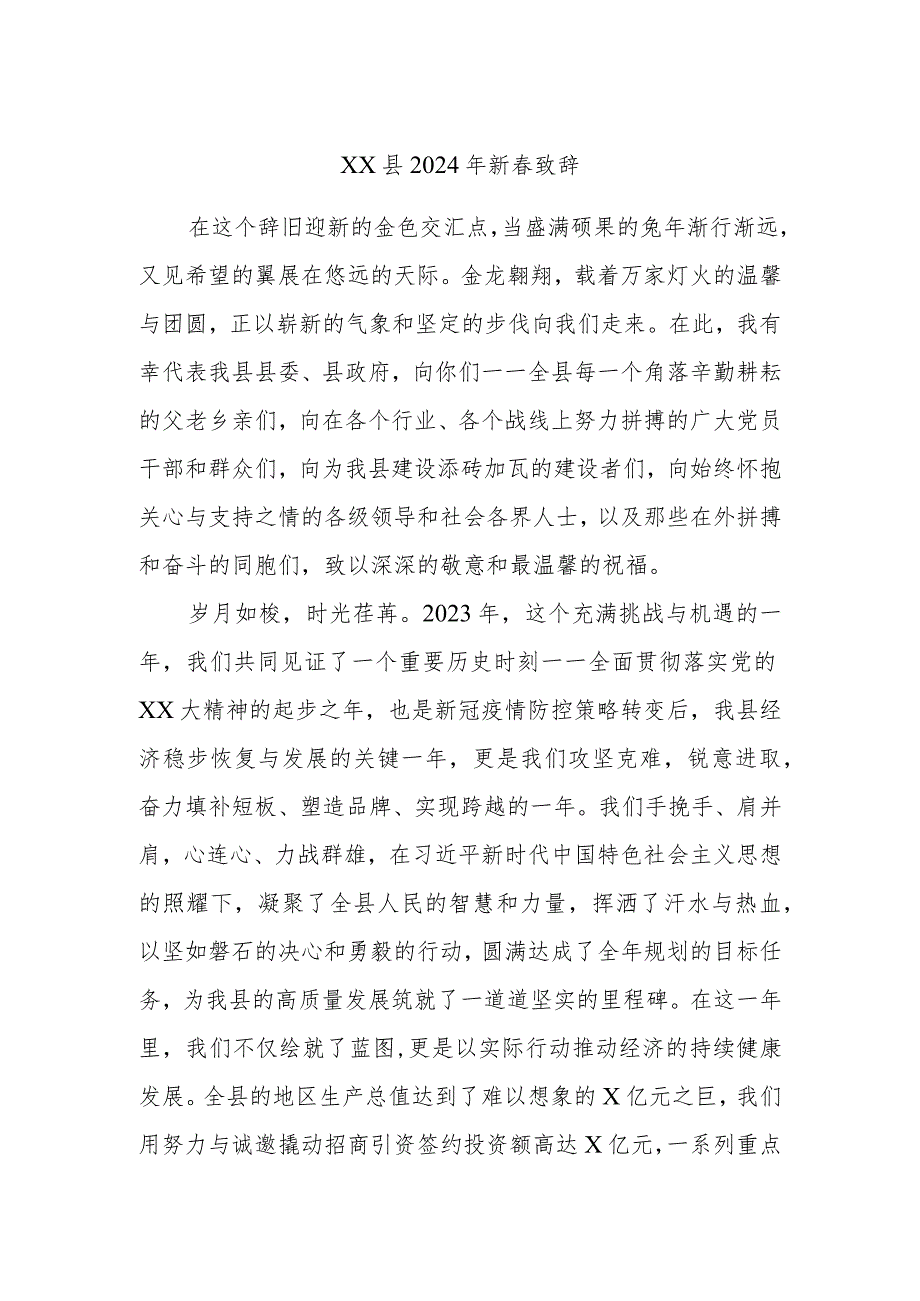 XX县2024年新春致辞
在这个辞旧迎新的金色交汇点，当盛满硕果的兔年渐行渐远，
又见希望的翼展在悠远的天际。金龙翱翔，载着万家灯火的温馨
与团圆，正以崭新的气象和坚定的步伐向我们走来。在此，我有
幸代表我县县委、县政府，向你们一一全县每一个角落辛勤耕耘
的父老乡亲们，向在各个行业、各个战线上努力拼搏的广大党员
干部和群众们，向为我县建设添砖加瓦的建设者们，向始终怀抱
关心与支持之情的各级领导和社会各界人士，以及那些在外拼搏
和奋斗的同胞们，致以深深的敬意和最温馨的祝福。
岁月如梭，时光荏苒。2023年，这个充满挑战与机遇的一
年，我们共同见证了一个重要历史时刻一一全面贯彻落实党的
XX大精神的起步之年，也是新冠疫情防控策略转变后，我县经
济稳步恢复与发展的关键一年，更是我们攻坚克难，锐意进取，
奋力填补短板、塑造品牌、实现跨越的一年。我们手挽手、肩并
肩，心连心、力战群雄，在习近平新时代中国特色社会主义思想
的照耀下，凝聚了全县人民的智慧和力量，挥洒了汗水与热血，
以坚如磐石的决心和勇毅的行动，圆满达成了全年规划的目标任
务，为我县的高质量发展筑就了一道道坚实的里程碑。在这一年
里，我们不仅绘就了蓝图,更是以实际行动推动经济的持续健康
发展。全县的地区生产总值达到了难以想象的X亿元之巨，我们
用努力与诚邀撬动招商引资签约投资额高达X亿元，一系列重点